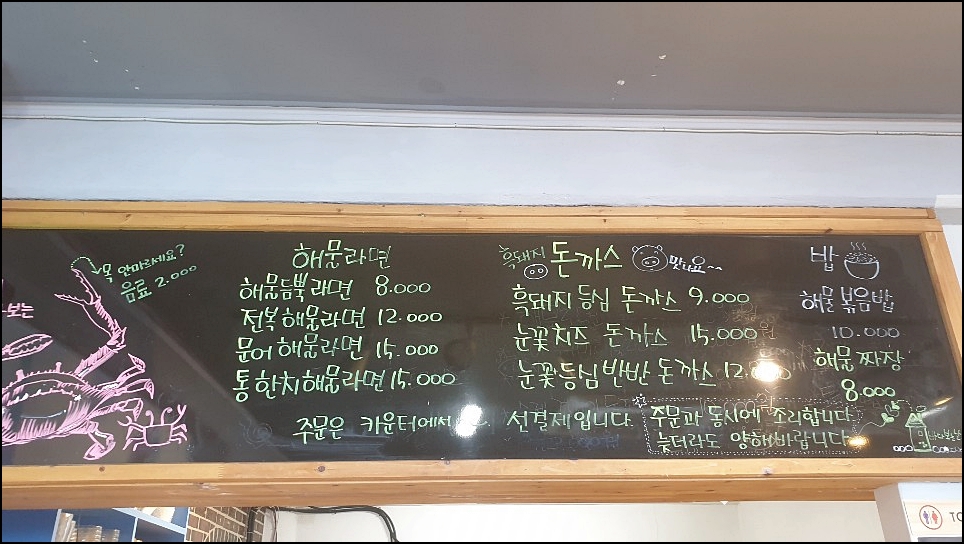 보는
목 안마르세요?
음료 2.000
해물라면
해물듬뿍라면 8.000
전복해물라면 12.000
문어해물라면 15.000
통한치해물라면 15.000
흑돼지 돈까스 맛나요~~
흑돼지 등심 돈까스 9.000
눈꽃치즈 돈까스 15.000
눈꽃등심반반 돈까스 12.
밥
해물볶음밥
10.000
해물짜장
8.000
주문은 카운터에서 선결제입니다
주문과 동시에 조리합니다
늦더라도 양해바랍니다
TO